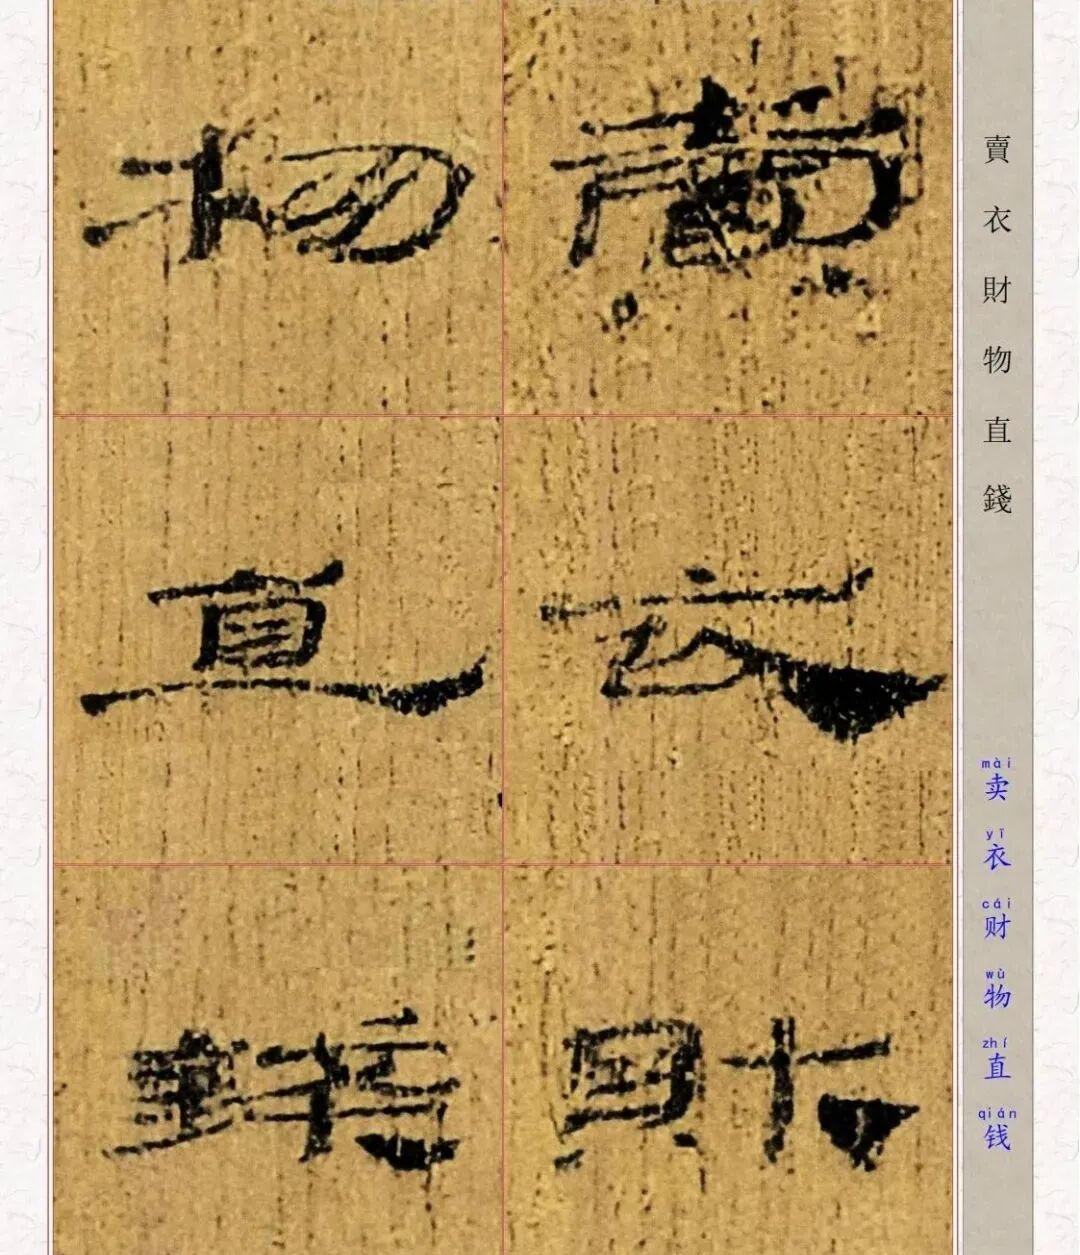 賣衣財
物直錢
賣衣財物直錢
mài yī cái wù zhí qián
卖衣财物直钱